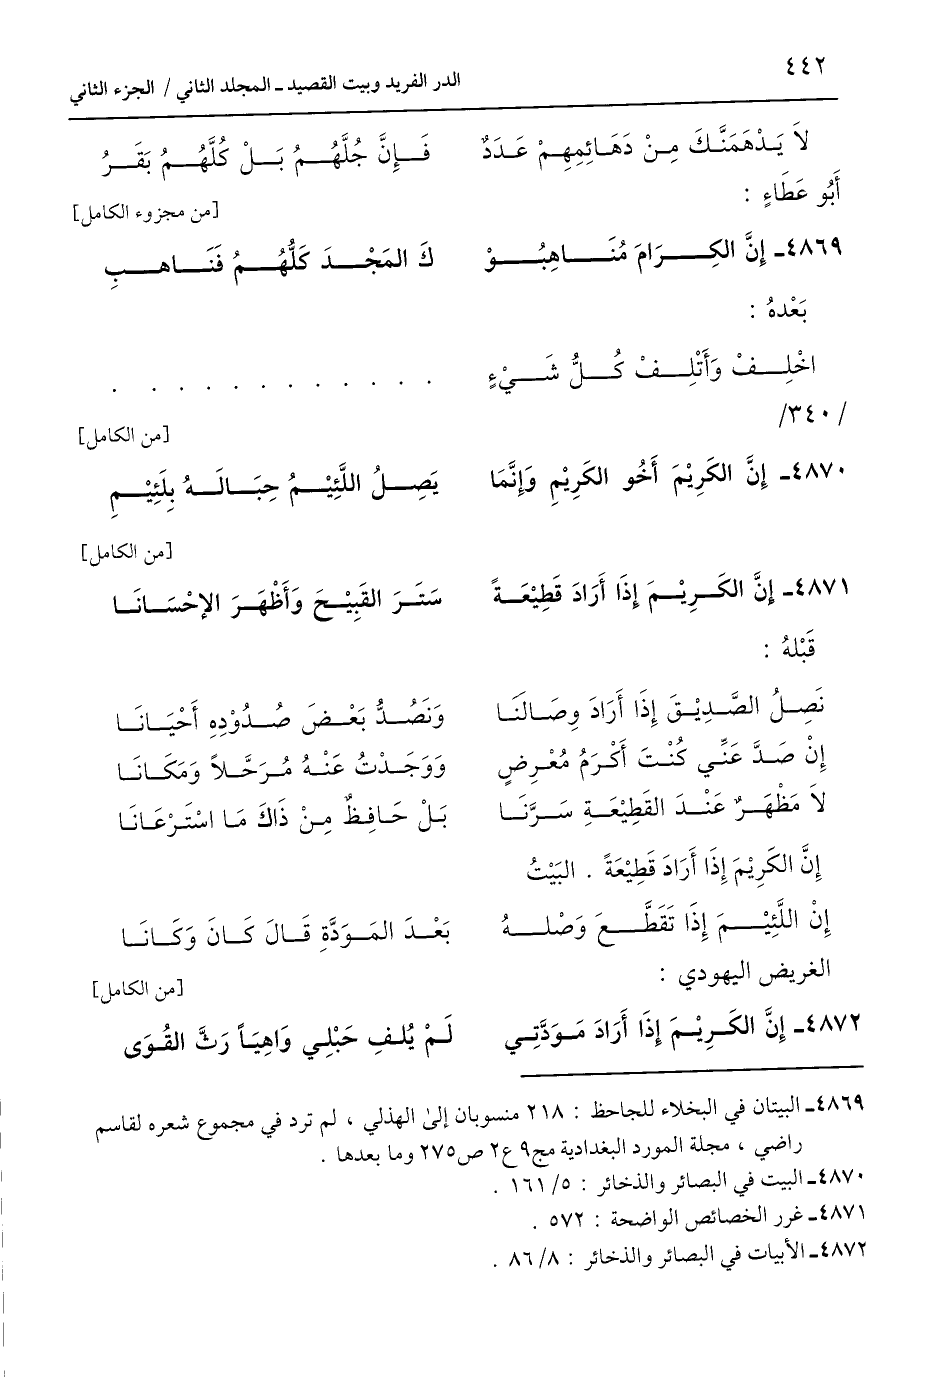 ٤٤٢
الدر الفريد وبيت القصيد ـ المجلد الثاني / الجزء الثاني
لاَ يَـدْهَمَنَّـكَ مِـنْ دَهَـائِمِهِـمْ عَـدَدٌ فَـإِنَّ جُلَّهُـمُ بَـلْ كُلَّهُـمُ بَقَـرُ
أَبُو عَطَاءٍ :
[من مجزوء الكامل]
٤٨٦٩ـ إِنَّ الكِـرَامَ مُنَـاهِبُـوْ كَ المَجْـدَ كُلُّهُـمُ فَنَـاهـبِ
بَعْدهُ :
اخْلِـفْ وَأَتْلِـفْ كُـلُّ شَـيْءٍ . . . . . . . . . . . .
/٣٤٠/
[من الكامل]
٤٨٧٠ـ إِنَّ الكَرِيْمَ أَخُو الكَرِيْمِ وَإِنَّمَا يَصِـلُ اللَّئِيْـمُ حِبَـالَـهُ بِلَئِيْـمِ
[من الكامل]
٤٨٧١ـ إِنَّ الكَـرِيْـمَ إِذَا أَرَادَ قَطِيْعَـةً سَتَـرَ القَبِيْـحَ وَأَظْهَـرَ الإحْسَـانَـا
قَبْلهُ :
نَصِـلُ الصَّـدِيْـقَ إِذَا أَرَادَ وِصَـالَنَـا وَنَصُـدُّ بَعْـضَ صُـدُوْدِهِ أَحْيَـانَـا
إِنْ صَـدَّ عَنِّـي كُنْـتَ أَكْـرَمُ مُعْـرِضٍ وَوَجَـدْتُ عَنْـهُ مُـرَحَّـلاً وَمَكَـانَـا
لاَ مَظْهَـرٌ عَنْـدَ القَطِيْعَـةِ سَـرَّنَـا بَـلْ حَـافِـظٌ مِـنْ ذَاكَ مَـا اسْتَـرْعَـانَـا
إِنَّ الكَرِيْمَ إِذَا أَرَادَ قَطِيْعَةً . البَيْتُ
إِنْ اللَّئِيْـمَ إِذَا تَقَطَّـعَ وَصْلـهُ بَعْـدَ المَـوَدَّةِ قَـالَ كَـانَ وَكَـانَـا
الغريض اليهودي :
[من الكامل]
٤٨٧٢ـ إِنَّ الكَـرِيْـمَ إِذَا أَرَادَ مَـوَدَّتِـي لَـمْ يُلـفِ حَبْلِـي وَاهِيَـاً رَثَّ القُـوَى
٤٨٦٩ـ البيتان في البخلاء للجاحظ : ٢١٨ منسوبان إلىٰ الهذلي ، لم ترد في مجموع شعره لقاسم
راضي ، مجلة المورد البغدادية مج٩ ع٢ ص٢٧٥ وما بعدها .
٤٨٧٠ـ البيت في البصائر والذخائر : ٥/ ١٦١ .
٤٨٧١ـ غرر الخصائص الواضحة : ٥٧٢ .
٤٨٧٢ـ الأبيات في البصائر والذخائر : ٨/ ٨٦ .